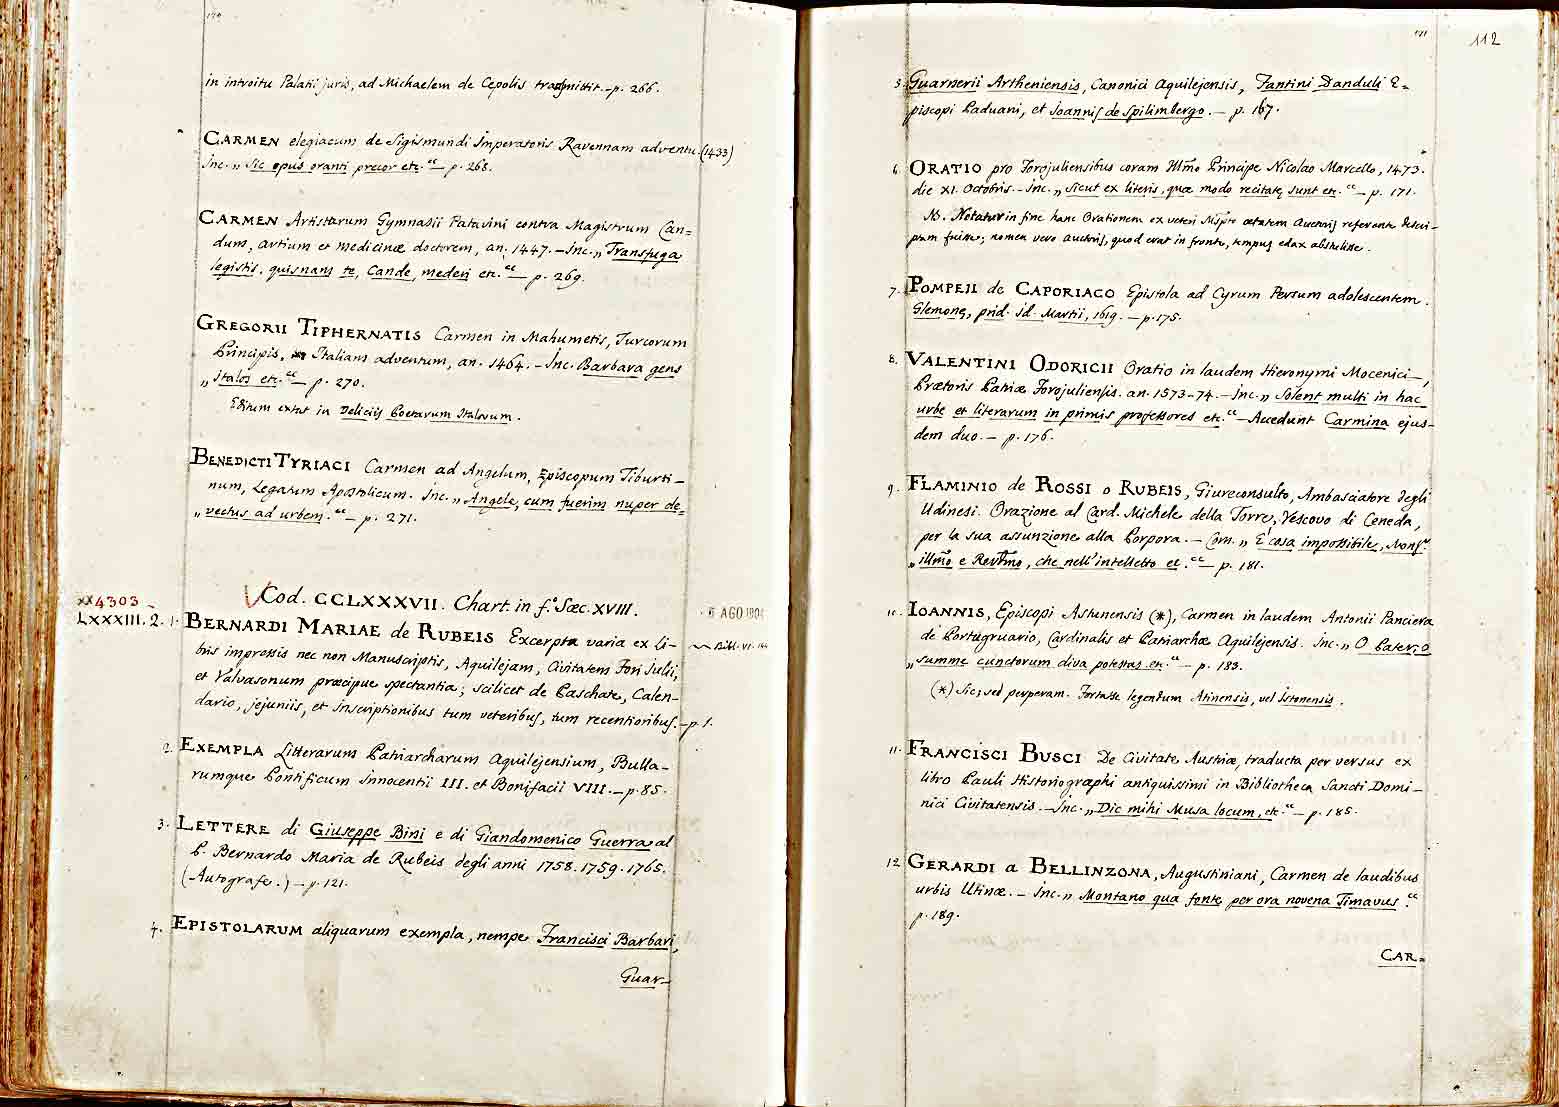 in introitu Palatii juris, ad Michaelem de Cepolis trasmittit. - p. 266.
CARMEN elegiacum de Sigismundi Imperatoris Ravennam adventu. (1433)
Inc. „ Sic opus oranti precor etc. “ - p. 268.
CARMEN Artistarum Gymnasii Patavini contra Magistrum Can=
dum, artium et medicinæ doctorem, an. 1447. - Inc. „ Transfuga
legistis, quisnam te, Cande, mederi etc. “ - p. 269.
GREGORII TIPHERNATIS Carmen in Mahumetis, Turcorum
Principis, in Italiam adventum, an. 1464. - Inc. Barbara gens
„ Italos etc. “ - p. 270.
Editum extat in Deliciis Poetarum Italorum.
BENEDICTI TYRIACI Carmen ad Angelum, Episcopum Tiburti-
num, Legatum Apostolicum. Inc. „ Angele, cum fuerim nuper de=
„ vectus ad urbem. “ - p. 271.
Cod. CCLXXXVII. Chart. in f.º Sæc. XVIII.
XX4303
LXXXIII. 2.
6 AGO
1. BERNARDI MARIAE de RUBEIS Excerpta varia ex li-
bris impressis nec non Manuscriptis, Aquilejam, Civitatem Fori Julii,
et Valvasonum præcipue spectantia; scilicet de Paschate, Calen-
dario, jejuniis, et Inscriptionibus tum veteribus, tum recentioribus. - p. 1.
2. EXEMPLA Litterarum Patriarcharum Aquilejensium, Bulla-
rumque Pontificum Innocentii III. et Bonifacii VIII. - p. 85.
3. LETTERE di Giuseppe Bini e di Giandomenico Guerra al
P. Bernardo Maria de Rubeis degli anni 1758. 1759. 1765.
(Autografe.) - p. 121.
4. EPISTOLARUM aliquarum exempla, nempe Francisci Barbari,
Guar-
112
5. Guarnerii Artheniensis, Canonici Aquilejensis, Fantini Danduli E=
piscopi Paduani, et Joannis de Spilimbergo. - p. 167.
6. ORATIO pro Forojuliensibus coram Illmo Principe Nicolao Marcello, 1473.
die XI. Octobris. - Inc. „ Sicut ex literis, quæ modo recitatę sunt etc. “ - p. 171.
NB. Notatur in fine hanc Orationem ex veteri Msspto ætatem Auctoris referente descri-
ptam fuisse; nomen vero auctoris, quod erat in fronte, tempus edax abstulisse.
7. POMPEII de CAPORIACO Epistola ad Cyrum Persum adolescentem.
Glemonę, prid. Id. Martii, 1619. - p. 175.
8. VALENTINI ODORICII Oratio in laudem Hieronymi Mocenici,
Prætoris Patriæ Forojuliensis. an. 1573-74. - Inc. „ Solent multi in hac
urbe et literarum in primis professores etc. “ - Accedunt Carmina ejus-
dem duo. - p. 176.
9. FLAMINIO de ROSSI o RUBEIS, Giureconsulto, Ambasciatore degli
Udinesi. Orazione al Card. Michele della Torre, Vescovo di Ceneda,
per la sua assunzione alla Porpora. - Com. „ E' cosa impossibile, Mons.r
„ illmo e Revmo, che nell'intelletto ec. “ - p. 181.
10. IOANNIS, Episcopi Astunensis (*), Carmen in laudem Antonii Panciera
de Portugruario, Cardinalis et Patriarchæ Aquilejensis. Inc. „ O Pater, o
„ summe cunctorum diva potestas etc. “ - p. 183.
(*) Sic; sed perperam. Fortasse legendum Atinensis, vel Istonensis.
11. FRANCISCI BUSCI De Civitate Austriæ, traducta per versus ex
libro Pauli Historiographi antiquissimi in Bibliotheca Sancti Domi-
nici Civitatensis. - Inc. „ Dic mihi Musa locum, etc. “ - p. 185.
12. GERARDI a BELLINZONA, Augustiniani, Carmen de laudibus
urbis Utinæ. - Inc. „ Montano qua fonte per ora novena Timavus. “
p. 189.
CAR=